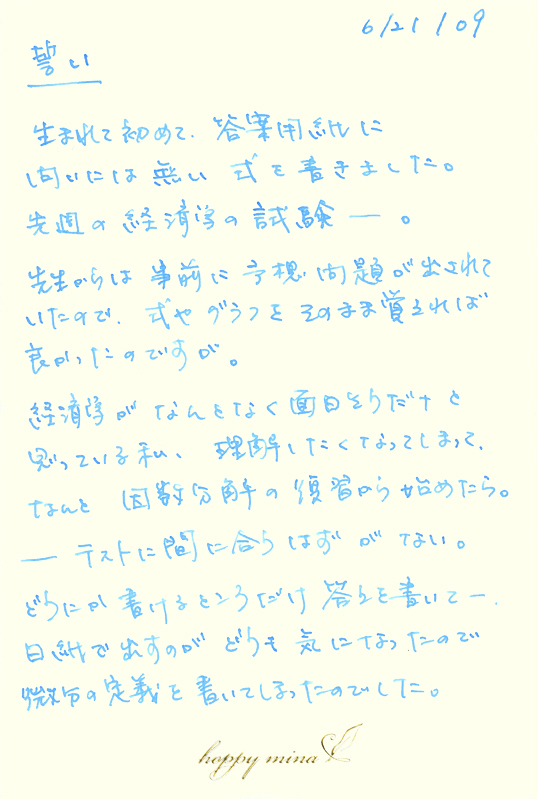 6/21/09
誓い
生まれて初めて、答案用紙に
問いには無い 式を書きました。
先週の経済学の試験ー。
先生からは 事前に予想問題が出されて
いたので、式やグラフをそのまま覚えれば
良かったのですが。
経済学が なんとなく面白そうだナと
思っている私、理解したくなってしまって、
なんと 因数分解の復習から始めたら。
ー テストに間に合うはずがない。
どうにか書けるところだけ 答えを書いてー、
白紙で出すのが どうも 気になったので
微分の定義を書いてしまったのでした。
happy mina